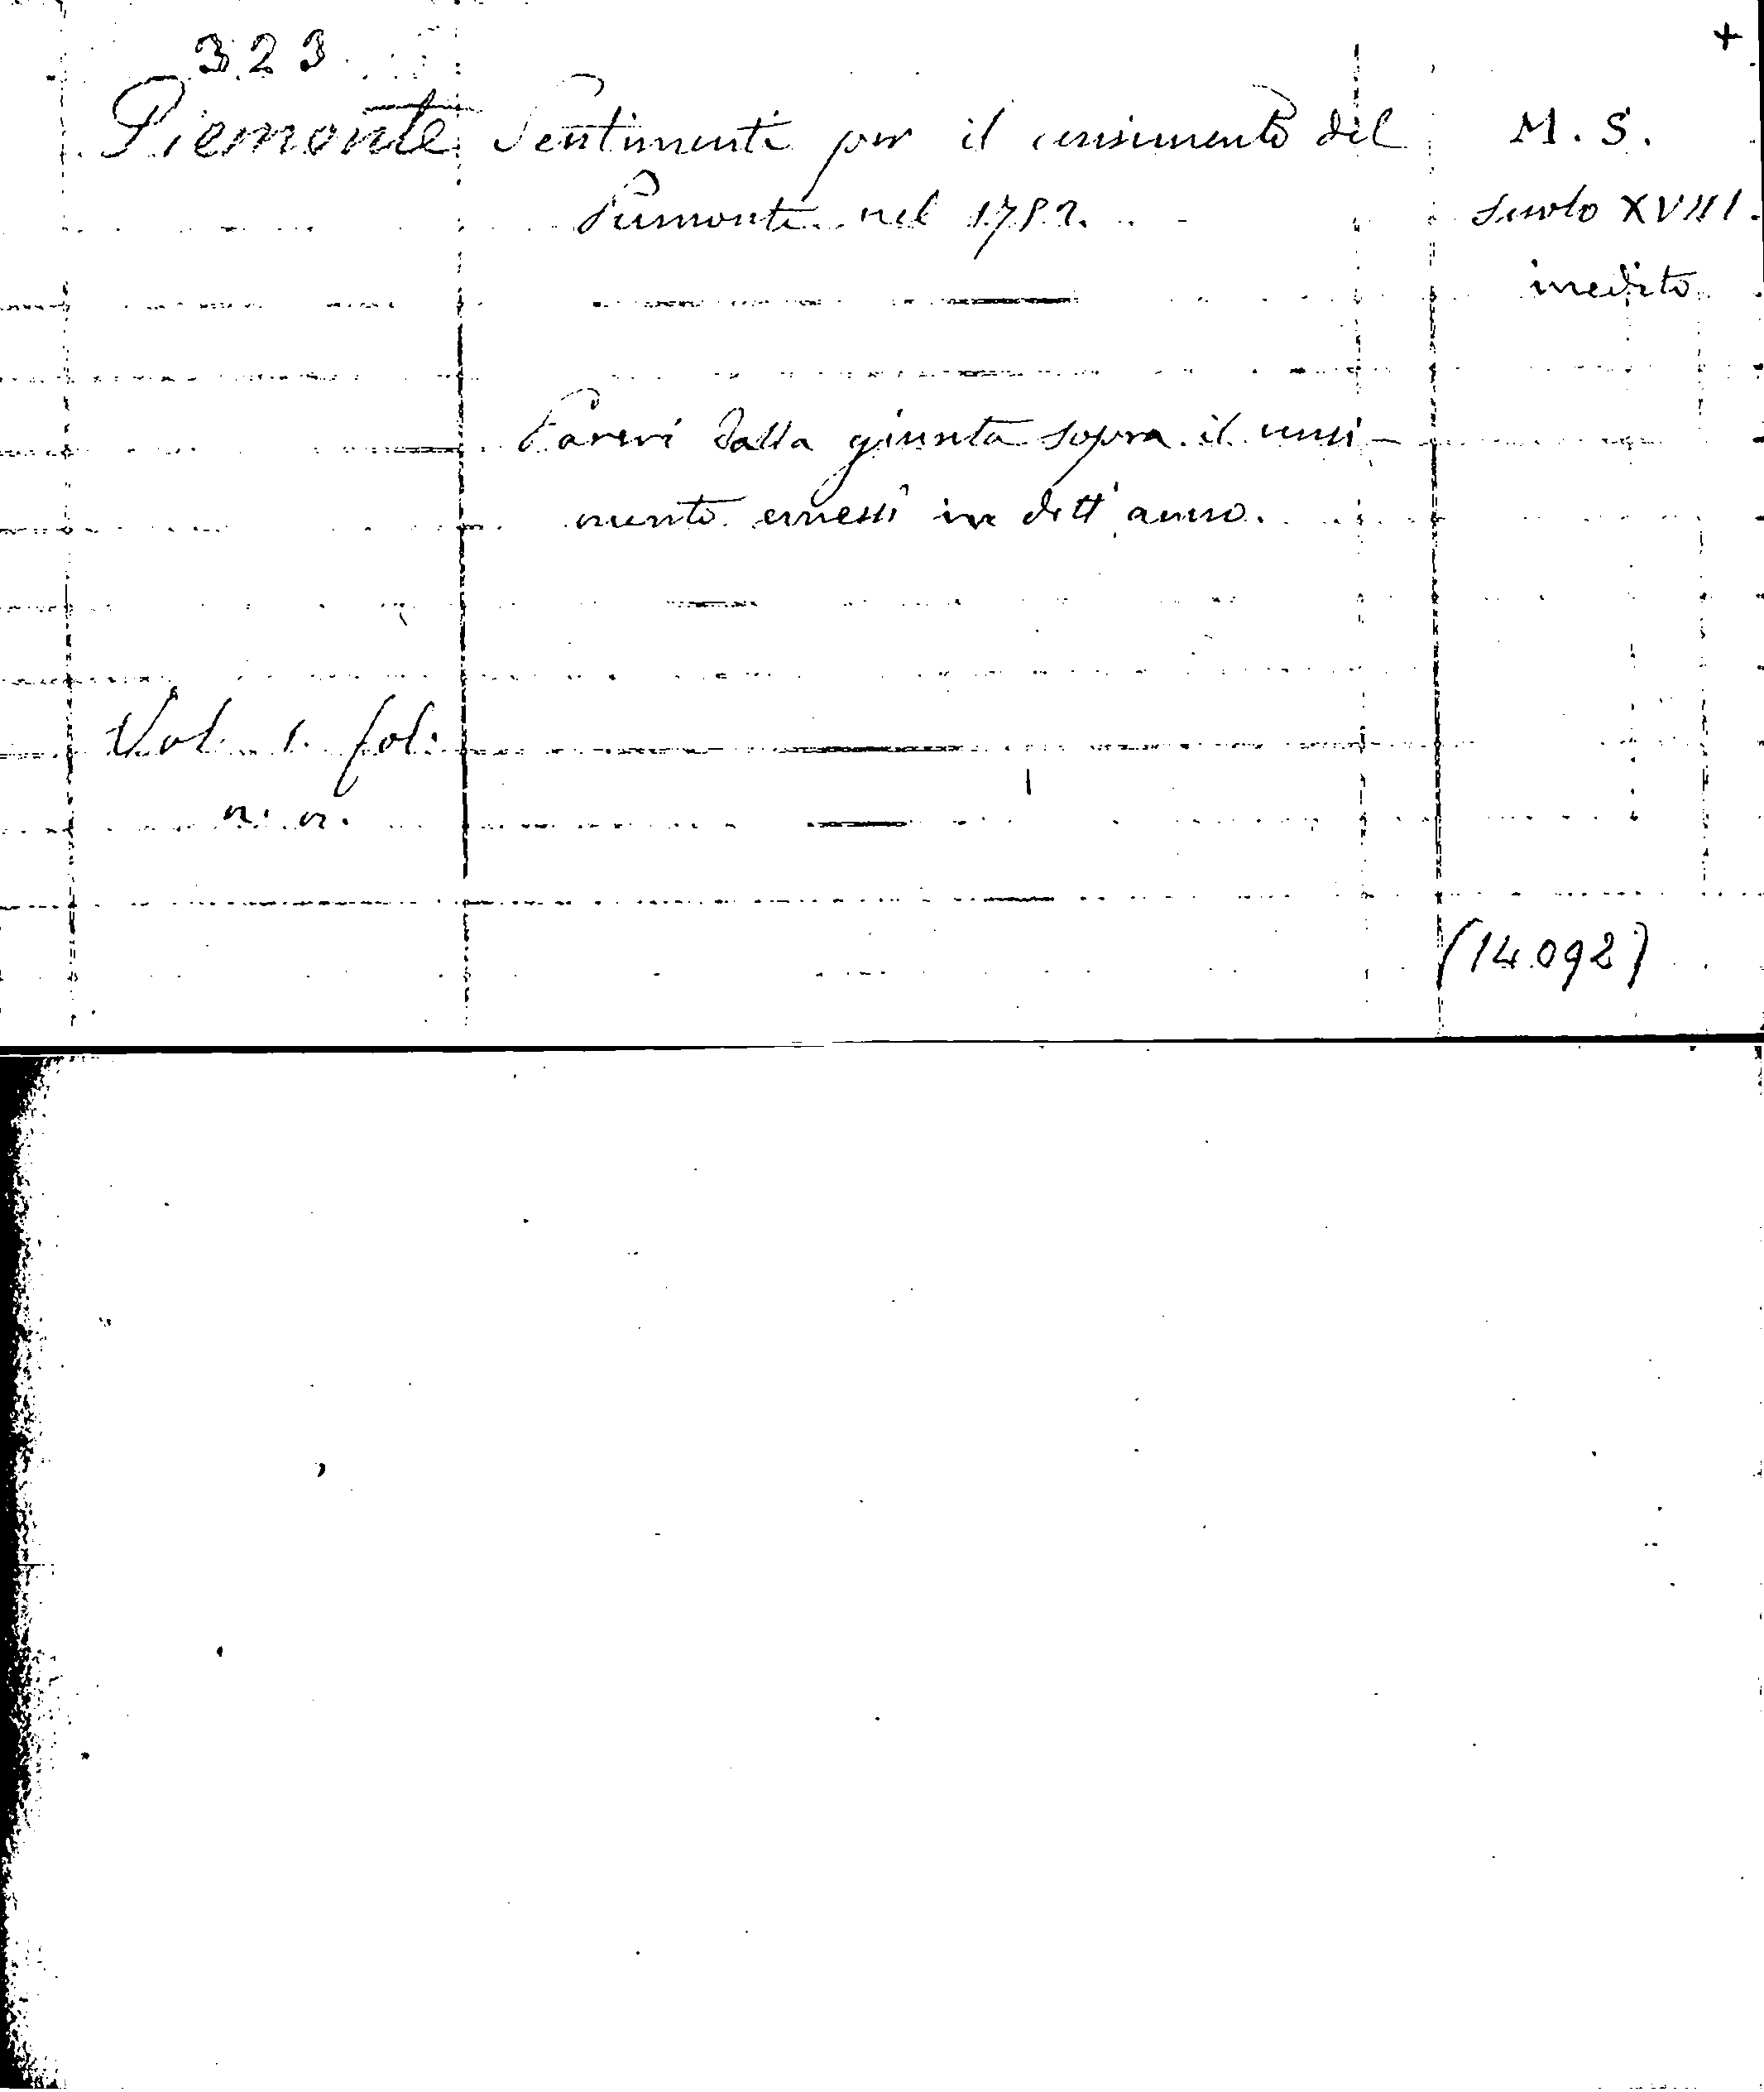 323 +
Piemonte Sentimenti per il censimento del M. S.
Piemonte nel secolo XVIII.
inedito
Pareri dalla giunta sopra il censi-
mento emessi in dett' anno.
Vol. 1. fol.
n. n.
(14.092)